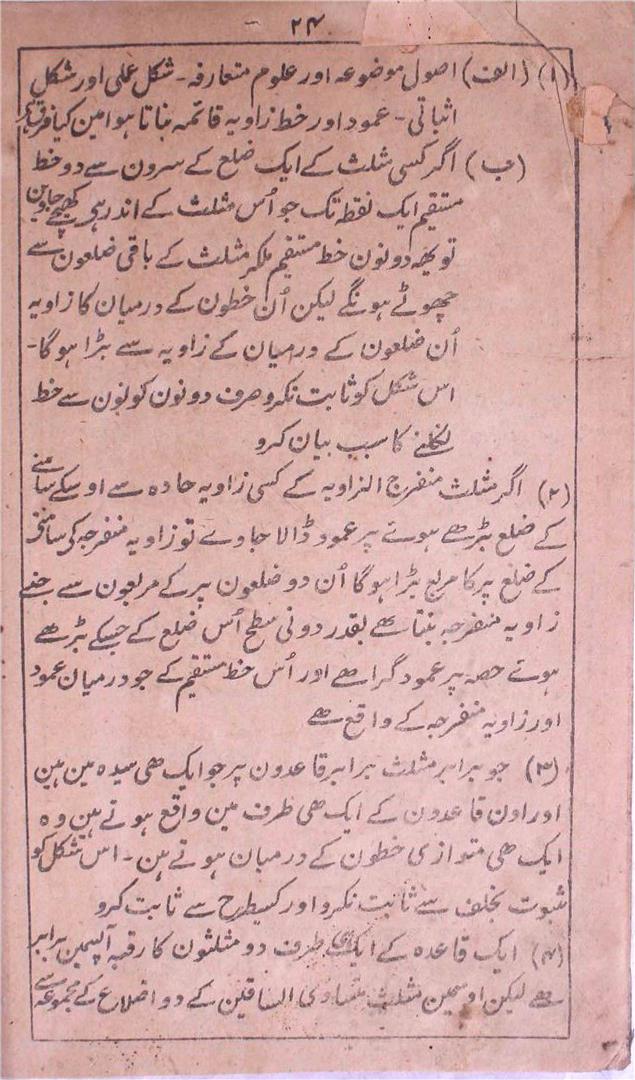 ۲۴
(۱) (الف) اصول موضوعہ اور علوم متعارفہ - شکل عملی اور شکل
اثباتی - عمود اور خط زاویہ قائمہ بناتا ہوا مین کیا فرق ہے
(ب) اگر کسی مثلث کے ایک ضلع کے سرون سے دو خط
مستقیم ایک نقطہ تک جو اُس مثلث کے اندر ہی کھینچے جاوین
تو یھہ دونون خط مستقیم ملکر مثلث کے باقی ضلعون سے
چھوٹے ہونگے لیکن اُن خطون کے درمیان کا زاویہ
اُن ضلعون کے درمیان کے زاویہ سے بڑا ہوگا -
اس شکل کو ثابت نکرو صرف دونون کونون سے خط
نکلنے کا سبب بیان کرو
(۲) اگر مثلث منفرج الزاویہ کے کسی زاویہ حادہ سے اوسکے سامنے
کے ضلع بڑھے ہوئے پر عمود ڈالا جاوے تو زاویہ منفرجہ کی سامنے
کے ضلع پر کا مربع بڑا ہوگا اُن دو ضلعون پر کے مربعون سے جنسے
زاویہ منفرجہ بنتا ھے بقدر دونی سطح اُس ضلع کے جسکے بڑھے
ہوئے حصہ پر عمود گرا ھے اور اُس خط مستقیم کے جو درمیان عمود
اور زاویہ منفرجہ کے واقع ھے
(۳) جو برابر مثلث برابر قاعدون پر جو ایک ھی سیدہ مین ہین
اور اون قاعدون کے ایک ھی طرف مین واقع ہوتے ہین وہ
ایک ھی متوازی خطون کے درمیان ہوتے ہین - اس شکل کو
ثبوت بخلف سے ثابت نکرو اور کسیطرح سے ثابت کرو
(۴) ایک قاعدہ کے ایک ھی طرف دو مثلثون کا رقبہ آپسمین برابر
ھے لیکن اوسمین مثلث متساوی الساقین کے دو اضلاع کے مجموعہ سے